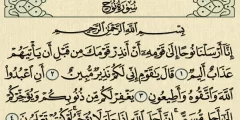 سُورَةُ نُوحٍ
بِسْمِ اللَّهِ الرَّحْمَٰنِ الرَّحِيمِ
إِنَّا أَرْسَلْنَا نُوحًا إِلَىٰ قَوْمِهِ أَنْ أَنذِرْ قَوْمَكَ مِن قَبْلِ أَن يَأْتِيَهُمْ
عَذَابٌ أَلِيمٌ ١ قَالَ يَٰقَوْمِ إِنِّي لَكُمْ نَذِيرٌ مُّبِينٌ ٢ أَنِ اعْبُدُوا
اللَّهَ وَاتَّقُوهُ وَأَطِيعُونِ ٣ يَغْفِرْ لَكُم مِّن ذُنُوبِكُمْ وَيُؤَخِّرْكُمْ